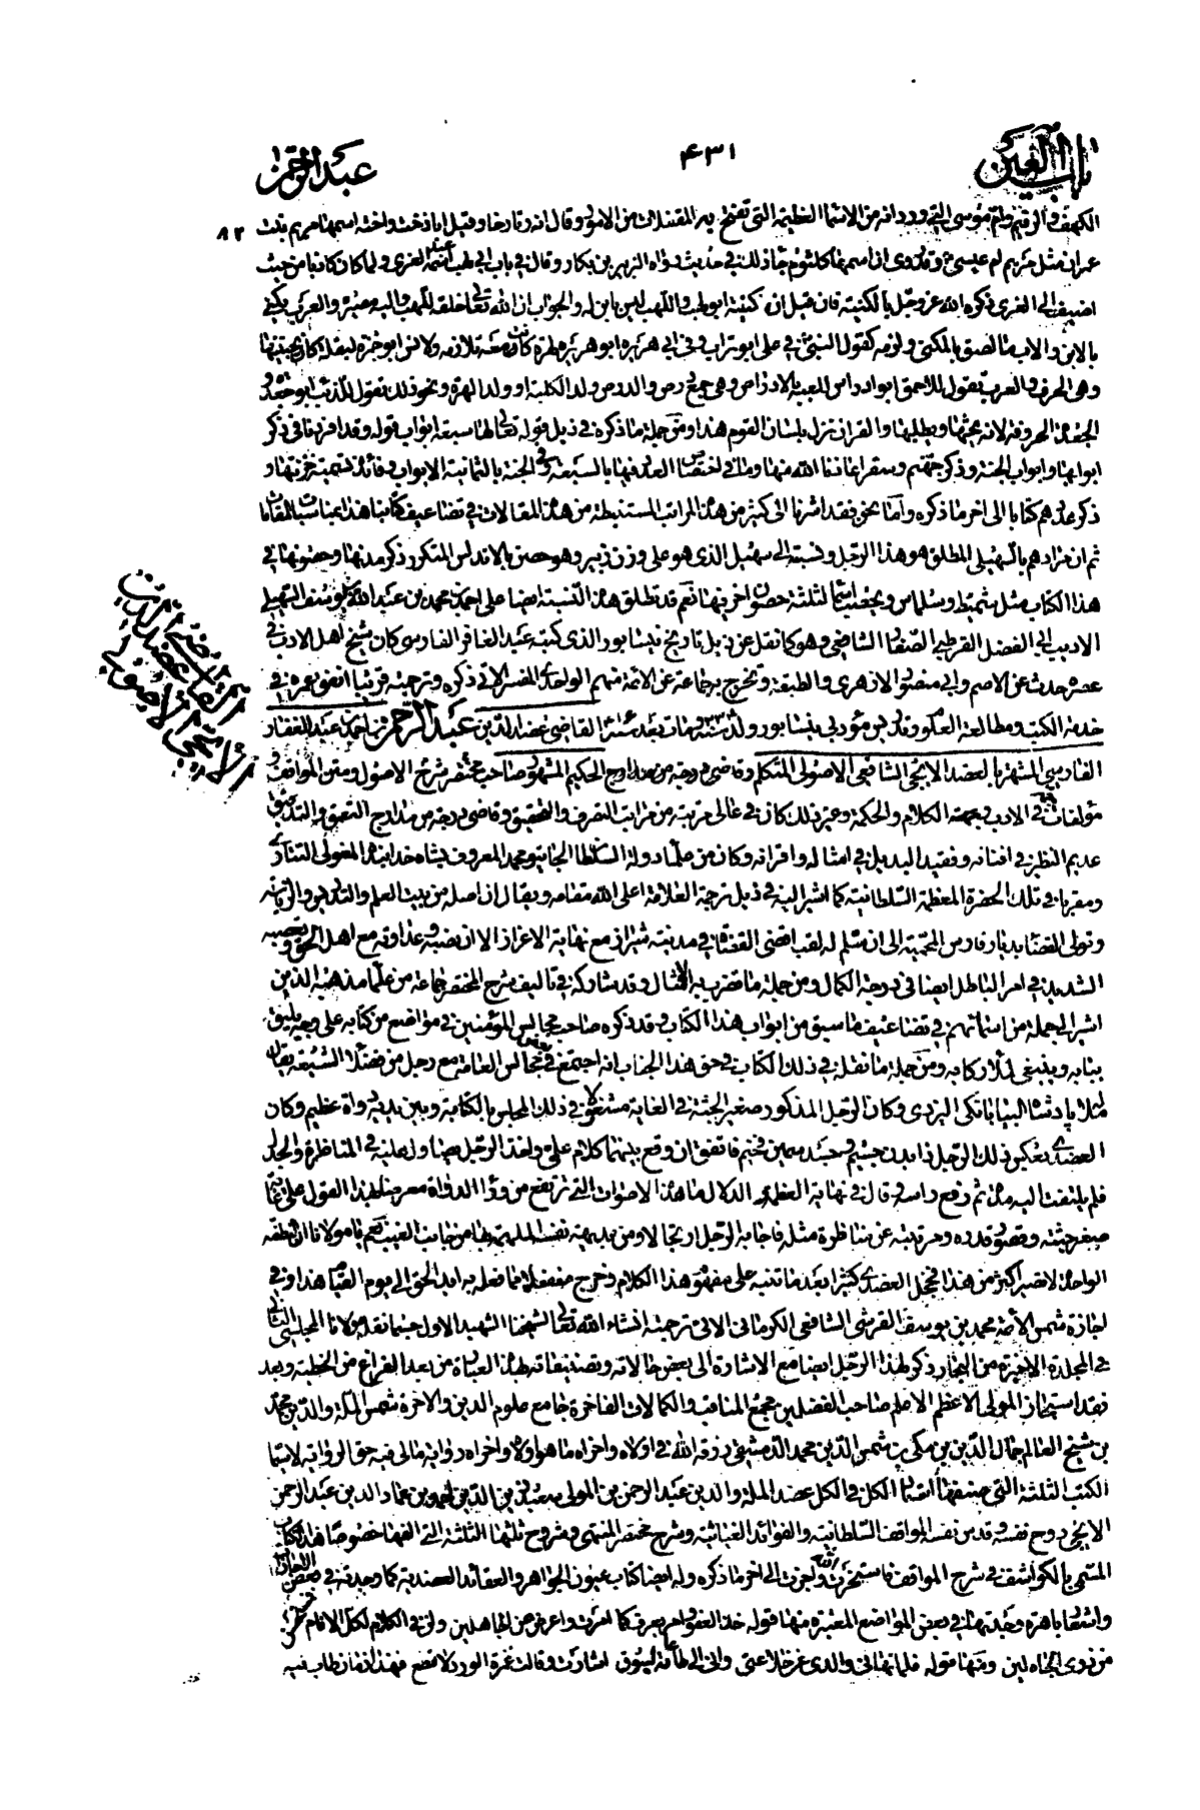 باب العين
٤٣١
عبد الرحمن
الكهف والرقيم وام موسى التي ورد انه من الاسماء العظيمة التي تفتح به المقفلات من الامور وقال انه وقيل اباذخت واخته اسمها مريم بنت ٨٢
عمران مثل مريم ام عيسى وقد روى ان اسمها كلثوم جاء ذلك في حديث رواه الزبير بن بكار وقال في باب ابي لهب عبد العزى ولما كان كانيا من حيث
اضيف الى العزى ذكره الله عز وجل بالكنية فان قيل ان كنيته ابو لهب واللهب ليس بابن له والجواب ان الله تعالى خلقه للهب واليه مصيره والعرب يكنى
بالابن والاب ما لصق بالمكنى ولزمه كقول النبي في علي ابو تراب وفي ابي هريرة ابو هريرة لهرة كانت معه تلازمه ولانس ابو حمزة لبقلة كان يجتنيها
وهي الحرف والعرب تقول للاحمق ابو ادراس للعبه بالادراص وهي جمع درص والدرص ولد الكلبة او ولد الهرة ونحو ذلك تقول للذئب ابو جعدة و
الجعدة لانه يحبها ويطلبها والقران نزل بلسان القوم هذا ومن جملة ما ذكره في ذيل قوله تعالى لها سبعة ابواب قوله وقد افردنا في ذكر
ابوابها وابواب الجنة وذكر جهنم وسقر اعاذنا الله منها وما في اختصاص العدد فيها بالسبعة وفي الجنة بالثمانية الابواب وفائدة تسمية خزنتها و
ذكر عددهم كتابا الى اخر ما ذكره واما نحن فقد اشرنا الى كثير من هذا المراتب المستنبطة من هذه المقالات في تضاعيف كتابنا هذا بمناسبات المقامات
ثم ان مرادهم بالسهيلي المطلق هو هذا الرجل ونسبته الى سهيل الذي هو على وزن زبير وهو حصن بالاندلس المتكرر ذكر مدنها وحصونها في
هذا الكتاب مثل وسلماس اسما لثلثة حصون اخر فيها نعم قد تطلق هذه النسبة ايضا على احمد بن محمد بن عبد الله بن يوسف السهيلي
الاديب ابي الفضل القرطبي الصفار الشافعي وهو كما نقل عن ذيل تاريخ نيشابور الذي كتبه عبد الغافر الفارسي كان شيخ اهل الادب في
عصره حدث عن الاصم وابي منصور الازهري والطبقة وتخرج به جماعة عن الائمة منهم الواحدي المفسر الاتي ذكره وترجمته قريبا انفق عمره في
خدمة الكتب ومطالعة العلوم وتدريس مؤدبي نيشابور القاضي عضد الدين عبد الرحمن بن احمد بن عبد الغفار
الفارسي المشتهر بالعضد الايجي الشافعي الاصولي المتكلم وقاضي درجة من مدارج الحكيم المشهور صاحب مختصر شرح الاصول ومتن المواقف و
مؤلفات في الادب وجهة الكلام والحكمة وغير ذلك كان في عالي مرتبة من مراتب التصرف والتحقيق وقاضي درجة من مدارج التعمق والتدقيق
عديم النظير في افنانه وفقيد البديل في امثاله واقرانه وكان من علماء دولة السلطان الجايتو محمد المعروف بشاه خدابنده المغولي التتاري
ومقربا في تلك الحضرة المعظمة السلطانية كما اشير اليه في ذيل ترجمة العلامة اعلى الله مقامه ويقال ان اصله من بيت العلم والتدريس والرياسة
وتولى القضاء بديار فارس المحمية الى ان سلم له لقب اقضى القضاة في مدينة شيراز مع نهاية الاعزاز الا ان نصبه وعداوته مع اهل الحق وتعصبه
الشديد في امر الباطل ايضا في درجة الكمال ومن جملة ما تضرب به الامثال وقد شاركه في تاليف شرح المختصر جماعة من علماء مذهبه الذين
اشير الى جملة من اسمائهم في تضاعيف ما سبق من ابواب هذا الكتاب وقد ذكره صاحب مجالس المؤمنين في مواضع من كتابه على وجه يليق
ببابه وينبغي لمثل ركابه ومن جملة ما نقله في ذلك الكتاب في حق هذا الجناب انه اجتمع في بعض مجالس العامة مع رجل من فضلاء الشيعة يقال
لملا پادشاه البيابانكي اليزدي وكان الرجل المذكور صغير الجثة في الغاية مشغولا في ذلك المجلس بالكتابة وبين يديه دواة عظيم وكان
العضدي بعكس ذلك الرجل ذا بدن جسيم وجسد سمين فخيم فاتفق ان وقع بينهما كلام علمي واخذ الرجل يصاول عليه في المناظرة والجدل
فلم يلتفت اليه مدة ثم رفع راسه وقال في نهاية العظم والدلال ما هذه الاصوات التي ترتفع من وراء الدواة معرضا بهذا القول على غاية
صغر جثته وقصور قدره ومرتبته عن مناظرة مثله فاجابه الرجل ارتجالا ومن بديهة نفسه الملهمة بها من جانب الغيب نعم يا مولانا ان النطفة
الواحدة لا تصير اكبر من هذا فخجل العضدي كثيرا بعد ما تنبه على مفهوم هذا الكلام وخرج منفعلا مما فعله به ابد الحق الى يوم القيام هذا وفي
اجازة شمس الائمة محمد بن يوسف القرشي الشافعي الكرماني الاتي ترجمته انشاء الله تعالى لشيخنا الشهيد الاول حيثما نقله مولانا المجلسي الثاني
في المجلدة الاخيرة من البحار ذكر لهذا الرجل ايضا مع الاشارة الى بعض حالاته وتصنيفاته بهذه العبارة من بعد الفراغ من الخطبة وبعد
فقد استجاز المولى الاعظم الاعلم صاحب الفضلين مجمع المناقب والكمالات الفاخرة جامع علوم الدين والاخرة شمس الملة والدين محمد
بن شيخ العالم جمال الدين بن مكي بن شمس الدين محمد الدمشقي رزقه الله في اولاه واخراه ما هو اولاه واحراه رواية مالي فيه حق الرواية لا سيما
الكتب الثلثة التي صنفها استاد الكل في الكل عضد الملة والدين عبد الرحمن بن المولى زين الدين احمد بن عماد الدين عبد الرحمن
الايجي روح نفسه وقدس نفسه المواقف السلطانية والفوائد الغياثية وشرح مختصر المنتهى وشروح ثلثها الثلثة التي الفها خصوصا هذا الكتاب
المسمى بالكواشف في شرح المواقف فاستخرت الله واجزت الى اخر ما ذكره وله ايضا كتاب عيون الجواهر والعقائد العضدية كما وجدته في بعض الاجازات
واشعار باهرة وجدتها في بعض المواضع المعتبرة منها قوله خذ العفو وامر بعرف كما امرت واعرض عن الجاهلين ولن في الكلام لكل الانام
من ذوي الجاه لين ومنها قوله
القاضي عضد الدين
الايجي الاصولي